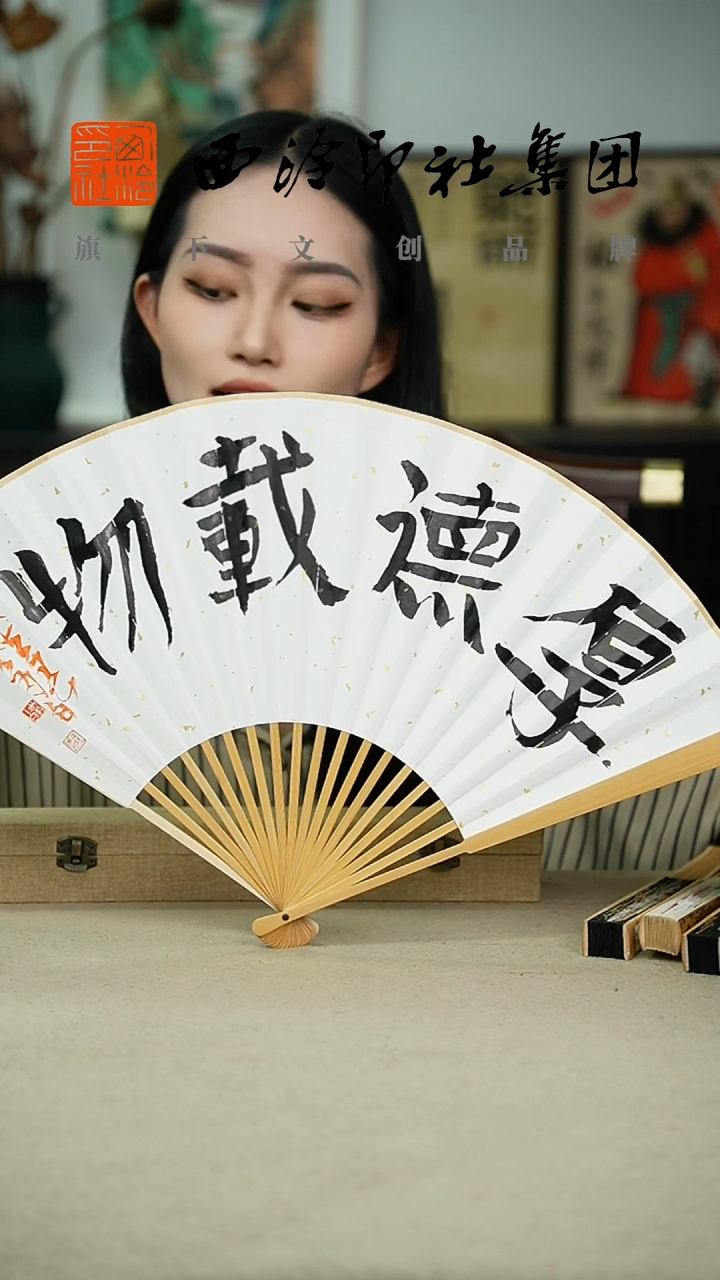 西泠印社
西泠印社集团
旗下文创品牌
厚德載物